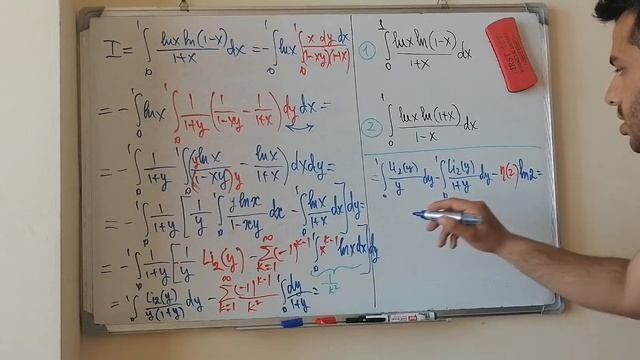 I = ∫₀¹ lnx ln(1-x)/(1+x) dx = -∫₀¹ lnx ∫₀¹ x dy dx/((1-xy)(1+x))
= -∫₀¹ lnx ∫₀¹ 1/(1+y) (1/(1-xy) - 1/(1+x)) dy dx =
= -∫₀¹ 1/(1+y) ∫₀¹ (y lnx/((1-xy)y) - lnx/(1+x)) dx dy =
= -∫₀¹ 1/(1+y) [1/y ∫₀¹ y lnx/(1-xy) dx - ∫₀¹ lnx/(1+x) dx] dy =
= -∫₀¹ 1/(1+y) [1/y Li₂(y) - ∑_{k=1}^{∞} (-1)^{k-1} ∫₀¹ x^{k-1} lnx dx] dy
= ∫₀¹ Li₂(y)/(y(1+y)) dy - ∑_{k=1}^{∞} (-1)^{k-1}/k² ∫₀¹ dy/(1+y) =
1/k²
① ∫₀¹ lnx ln(1-x)/(1+x) dx
② ∫₀¹ lnx ln(1+x)/(1-x) dx
= ∫₀¹ Li₂(y)/y dy - ∫₀¹ Li₂(y)/(1+y) dy - η(2) ln2 =